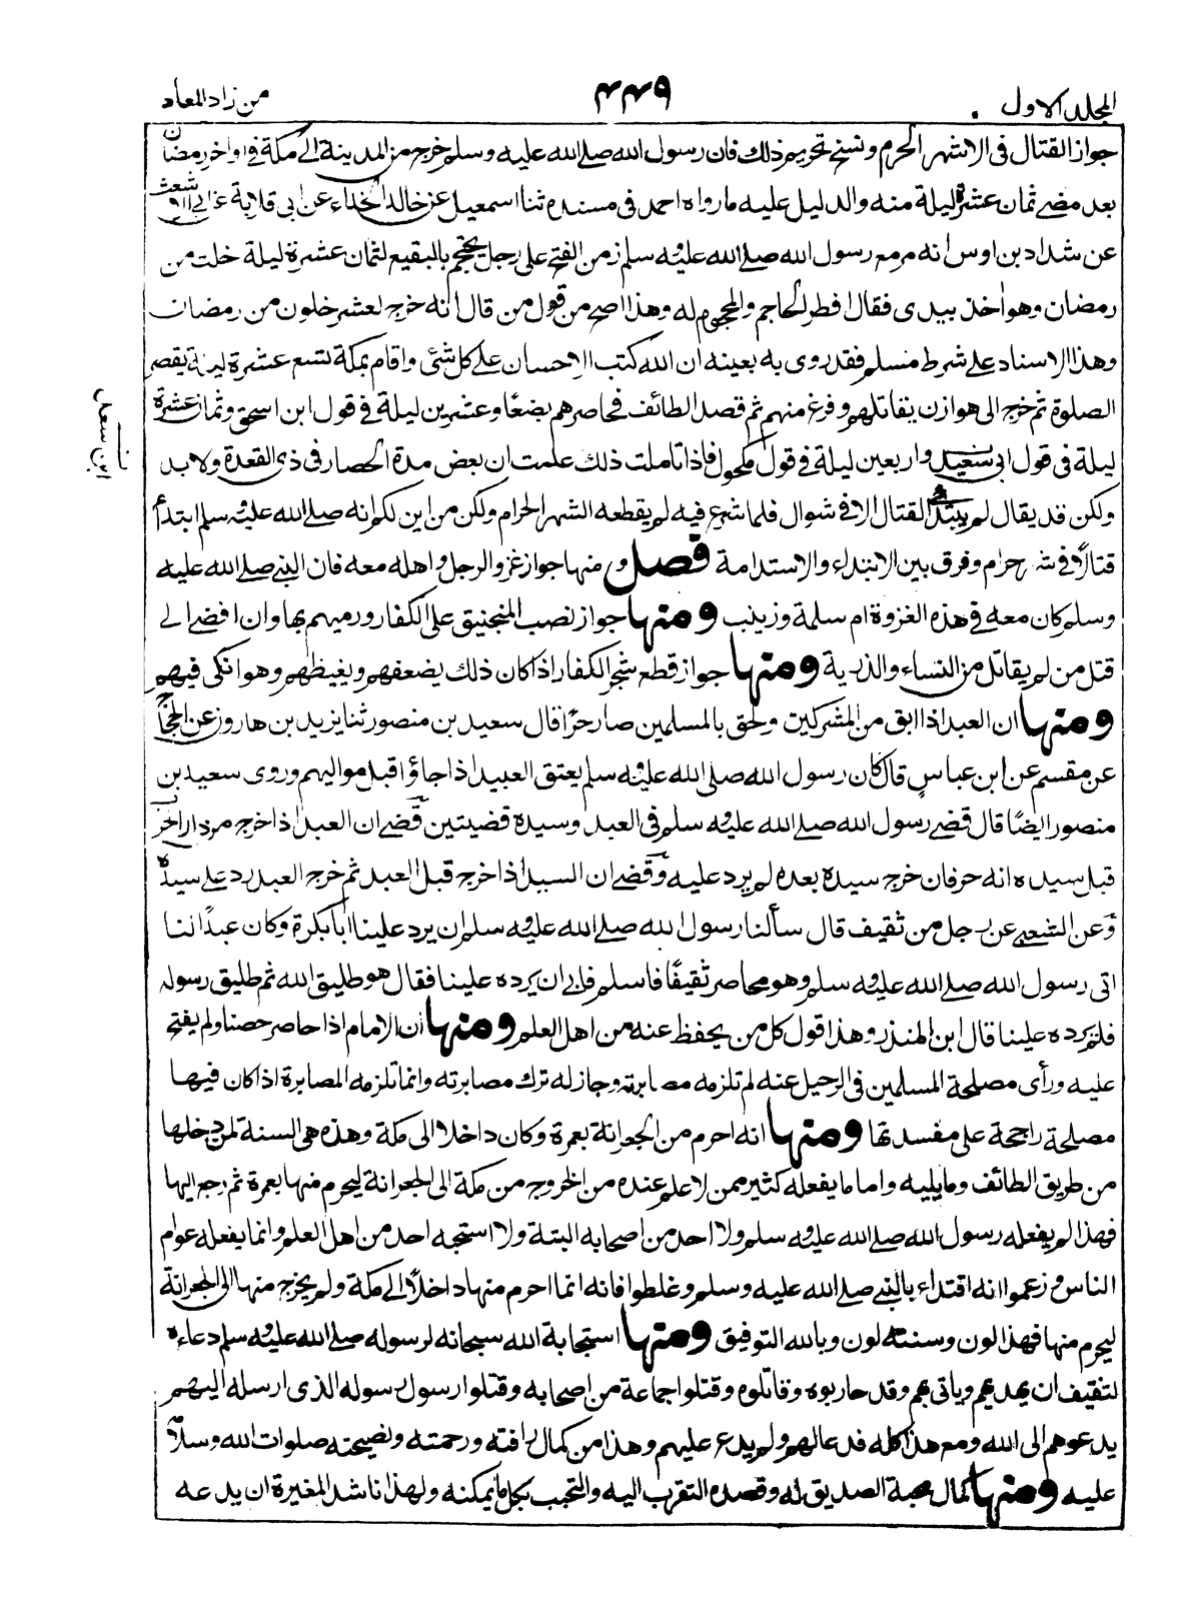 المجلد الاول
٤٤٩
من زاد المعاد
جواز القتال فى الاشهر الحرم ونسخ تحريم ذلك فان رسول الله صلے الله عليه وسلم خرج من المدينة الے مكة فے اواخر رمضان
بعد مضے ثمان عشرة ليلة منه والدليل عليه ما رواه احمد فى مسنده ثنا اسمعيل عن خالد الحذاء عن ابى قلابة عن ابے الاشعث
عن شداد بن اوس انه مر مع رسول الله صلے الله عليه وسلم زمن الفتح على رجل يحتجم بالبقيع لثمان عشرة ليلة خلت من
رمضان وهو اخذ بيدى فقال افطر الحاجم والمحجوم له وهذا اصح من قول من قال انه خرج لعشر خلون من رمضان
وهذا الاسناد علے شرط مسلم فقد روى به بعينه ان الله كتب الاحسان علے كل شئى واقام بمكة تسع عشرة ليلة يقصر
الصلوة ثم خرج الى هوازن يقاتلهم وفرغ منهم ثم قصد الطائف فحاصرهم بضعًا وعشرين ليلة فے قول ابن اسحق وثمان عشرة
ليلة فى قول ابى سعيد واربعين ليلة فے قول مكحول فاذا تاملت ذلك علمت ان بعض مدة الحصار فى ذى القعدة ولا بد
ابن سعد
ولكن قد يقال لم يبتدئ القتال الا فے شوال فلما شرع فيه لم يقطعه الشهر الحرام ولكن من اين لكم انه صلے الله عليه وسلم ابتدأ
قتالًا فے شهر حرام وفرق بين الابتداء والاستدامة فصل ومنها جواز غزو الرجل واهله معه فان النبے صلے الله عليه
وسلم كان معه فے هذه الغزوة ام سلمة وزينب ومنها جواز نصب المنجنيق علے الكفار ورميهم بها وان افضے الے
قتل من لم يقاتل من النساء والذرية ومنها جواز قطع شجر الكفار اذا كان ذلك يضعفهم ويغيظهم وهو انكى فيهم
ومنها ان العبد اذا ابق من المشركين ولحق بالمسلمين صار حرًا قال سعيد بن منصور ثنا يزيد بن هارون عن الحجاج
عن مقسم عن ابن عباس قال كان رسول الله صلى الله عليه وسلم يعتق العبيد اذا جاؤا قبل مواليهم وروى سعيد بن
منصور ايضًا قال قضے رسول الله صلے الله عليه وسلم فى العبد وسيده قضيتين قضے ان العبد اذا خرج من دار الحرب
قبل سيده انه حر فان خرج سيده بعده لم يرد عليه وقضے ان السيد اذا خرج قبل العبد ثم خرج العبد رد علے سيده
وعن الشعبے عن رجل من ثقيف قال سألنا رسول الله صلے الله عليه وسلم ان يرد علينا ابا بكرة وكان عبدًا لنا
اتى رسول الله صلے الله عليه وسلم وهو محاصر ثقيفًا فاسلم فابے ان يرده علينا فقال هو طليق الله ثم طليق رسوله
فلم يرده علينا قال ابن المنذر وهذا قول كل من يحفظ عنه من اهل العلم ومنها ان الامام اذا حاصر حصنا ولم يفتح
عليه ورأى مصلحة المسلمين فى الرحيل عنه لم تلزمه مصابرته وجاز له ترك مصابرته وانما تلزمه المصابرة اذا كان فيها
مصلحة راجحة على مفسدتها ومنها انه احرم من الجعرانة بعمرة وكان داخلا الى مكة وهذه هى السنة لمن دخلها
من طريق الطائف وما يليه واما ما يفعله كثير ممن لا علم عنده من الخروج من مكة الى الجعرانة ليحرم منها بعمرة ثم رجع اليها
فهذا لم يفعله رسول الله صلے الله عليه وسلم ولا احد من اصحابه البتة ولا استحبه احد من اهل العلم وانما يفعله عوام
الناس وزعموا انه اقتداء بالنبے صلے الله عليه وسلم وغلطوا فانه انما احرم منها داخلًا الے مكة ولم يخرج منها الى الجعرانة
ليحرم منها فهذا لون وسنته لون وبالله التوفيق ومنها استجابة الله سبحانه لرسوله صلے الله عليه وسلم دعاءه
لثقيف ان يهديهم وياتى بهم وقد حاربوه وقاتلوه وقتلوا جماعة من اصحابه وقتلوا رسول رسوله الذى ارسله اليهم
يدعوهم الى الله ومع هذا كله فدعا لهم ولم يدع عليهم وهذا من كمال رافته ورحمته ونصيحته صلوات الله وسلامه
عليه ومنها كمال محبة الصديق له وقصده التقرب اليه والتحبب بكل ما يمكنه ولهذا ناشد المغيرة ان يدعه